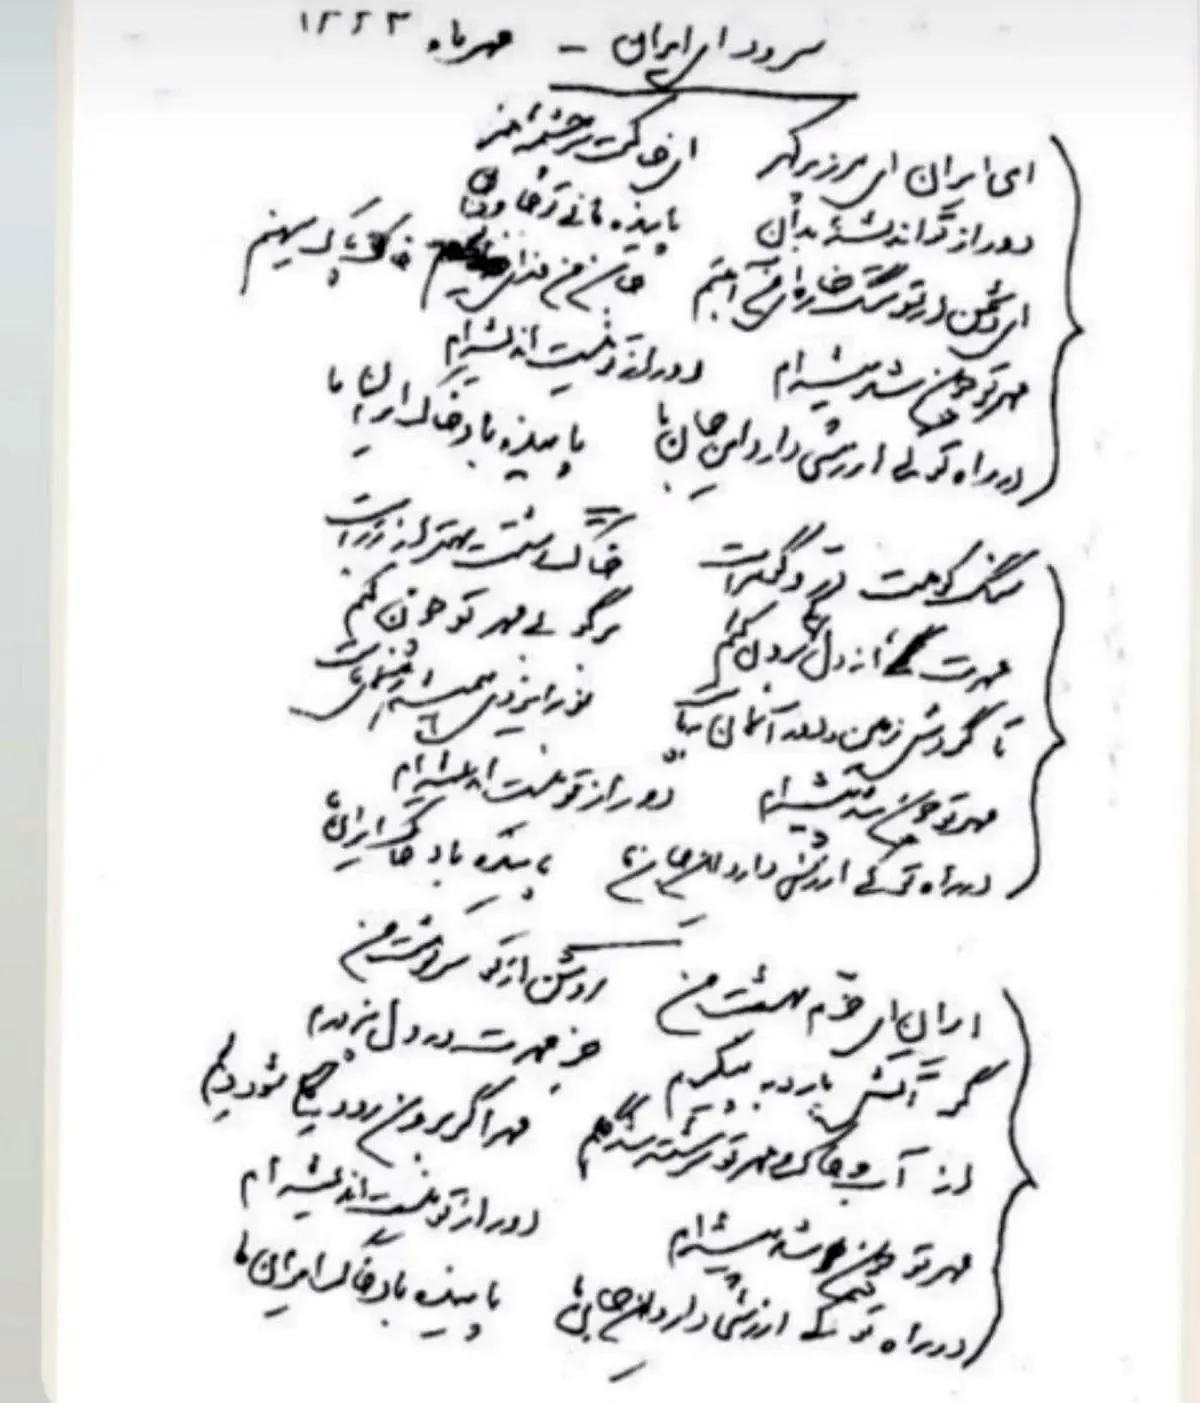 سرود ای ایران – مهرماه ۱۳۲۳
ای ایران ای مرز پرگهر ای خاکت سرچشمه هنر
دور از تو اندیشه بدان پاینده مانی تو جاودان
ای دشمن ار تو سنگ خاره‌ای من آهنم جان من فدای خاک پاک میهنم
مهر تو چون شد پیشه‌ام دور از تو نیست اندیشه‌ام
در راه تو کی ارزشی دارد این جان ما پاینده باد خاک ایران ما
سنگ کوهت در و گوهر است خاک دشتت بهتر از زر است
مهرت از دل کی برون کنم برگو بی مهر تو چون کنم
تا گردش زمین و دور آسمان بپاست نور ایزدی همیشه رهنمای ماست
مهر تو چون شد پیشه‌ام دور از تو نیست اندیشه‌ام
در راه تو کی ارزشی دارد این جان ما پاینده باد خاک ایران ما
ایران ای خرم بهشت من روشن از تو سرنوشت من
گر آتش بارد به پیکرم جز مهرت در دل نپرورم
از آب و خاک و مهر تو سرشته شد گلم مهر اگر برون رود تهی شود دلم
مهر تو چون شد پیشه‌ام دور از تو نیست اندیشه‌ام
در راه تو کی ارزشی دارد این جان ما پاینده باد خاک ایران ما